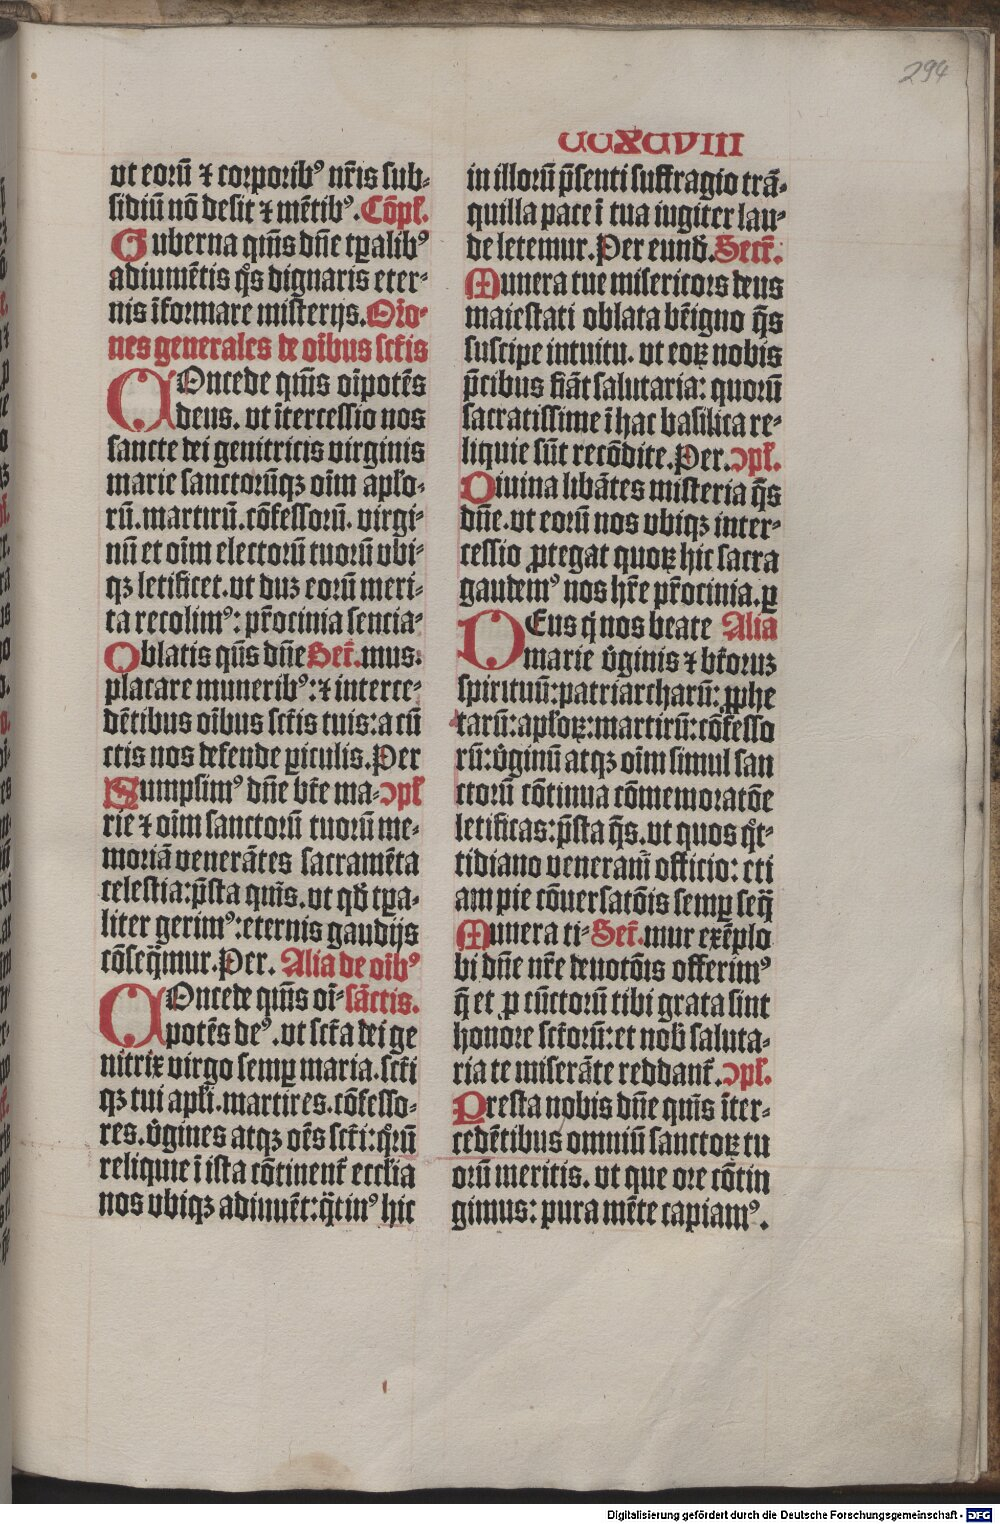 294
CCXCVIII
vt eorū ⁊ corporibꝰ nr̄is sub⸗
sidiū nō desit ⁊ mētibꝰ. Cōpł.
Guberna qm̄s dn̄e tꝑalibꝰ
adiumētis q̄s dignaris eter⸗
nis īformare misterijs. Or̄o⸗
nes generales de oībus sctīs
COncede qm̄s oīpotēs
deus. vt ītercessio nos
sancte dei genitricis virginis
marie sanctorūqꝫ oīm apło⸗
rū. martirū. cōfessorū. virgi⸗
nū et oīm electorū tuorū vbi⸗
qꝫ letificet. vt duꝫ eorū meri⸗
ta recolimꝰ: pr̄ocinia sencia⸗
Oblatis qm̄s dn̄e Secr̄. mus.
placare muneribꝰ: ⁊ interce⸗
dētibus oībus sctīs tuis: a cū
ctis nos defende ꝑiculis. Per
Sumpsimꝰ dn̄e btē ma⸗ ↄpł
rie ⁊ oīm sanctorū tuorū me⸗
moriā venerātes sacramēta
celestia: p̄sta qm̄s. vt qđ tꝑa⸗
liter gerimꝰ: eternis gaudijs
cōseq̄mur. Per. Alia de oībꝰ
COncede qm̄s oī⸗ sāctis.
potēs deꝰ. vt sctā dei ge
nitrix virgo semꝑ maria. sctī
qꝫ tui apłi. martires. cōfesso⸗
res. v̄gines atqꝫ oēs sctī: qͦrū
reliquie ī ista cōtinent̄ ecclīa
nos vbiqꝫ adiuuēt: q̄tinꝰ hic
in illorū p̄senti suffragio trā⸗
quilla pace ī tua iugiter lau⸗
de letemur. Per eunđ. Secr̄.
Munera tue misericors deus
maiestati oblata bēigno q̄s
suscipe intuitu. vt eoꝝ nobis
p̄cibus fiāt salutaria: quorū
sacratissime ī hac basilica re⸗
liquie sūt recōdite. Per. ↄpł.
Diuina libātes misteria q̄s
dn̄e. vt eorū nos vbiqꝫ inter⸗
cessio ꝓtegat quoꝝ hic sacra
gaudemꝰ nos hr̄e pr̄ocinia. ꝑ
DEus q̇ nos beate Alia
marie v̄ginis ⁊ btōruꝫ
spirituū: patriarcharū: ꝓphe
tarū: apłoꝝ: martirū: cōfesso
rū: v̄ginū atqꝫ oīm simul san
ctorū cōtinua cōmemoratōe
letificas: p̄sta q̄s. vt quos qͦt⸗
tidiano veneramͬ officio: eti
am pie cōuersatōis semꝑ seq̄
Munera ti⸗ Secr̄. mur exēplo
bi dn̄e nr̄e deuotōis offerimꝰ
q̄ et ꝓ cūctorū tibi grata sint
honore sctōrū: et nob̄ saluta⸗
ria te miserāte reddant̄. ↄpł.
Presta nobis dn̄e qm̄s īter⸗
cedētibus omniū sanctoꝝ tu
orū meritis. vt que ore cōtin
gimus: pura mēte capiamꝰ.
Digitalisierung gefördert durch die Deutsche Forschungsgemeinschaft - DFG